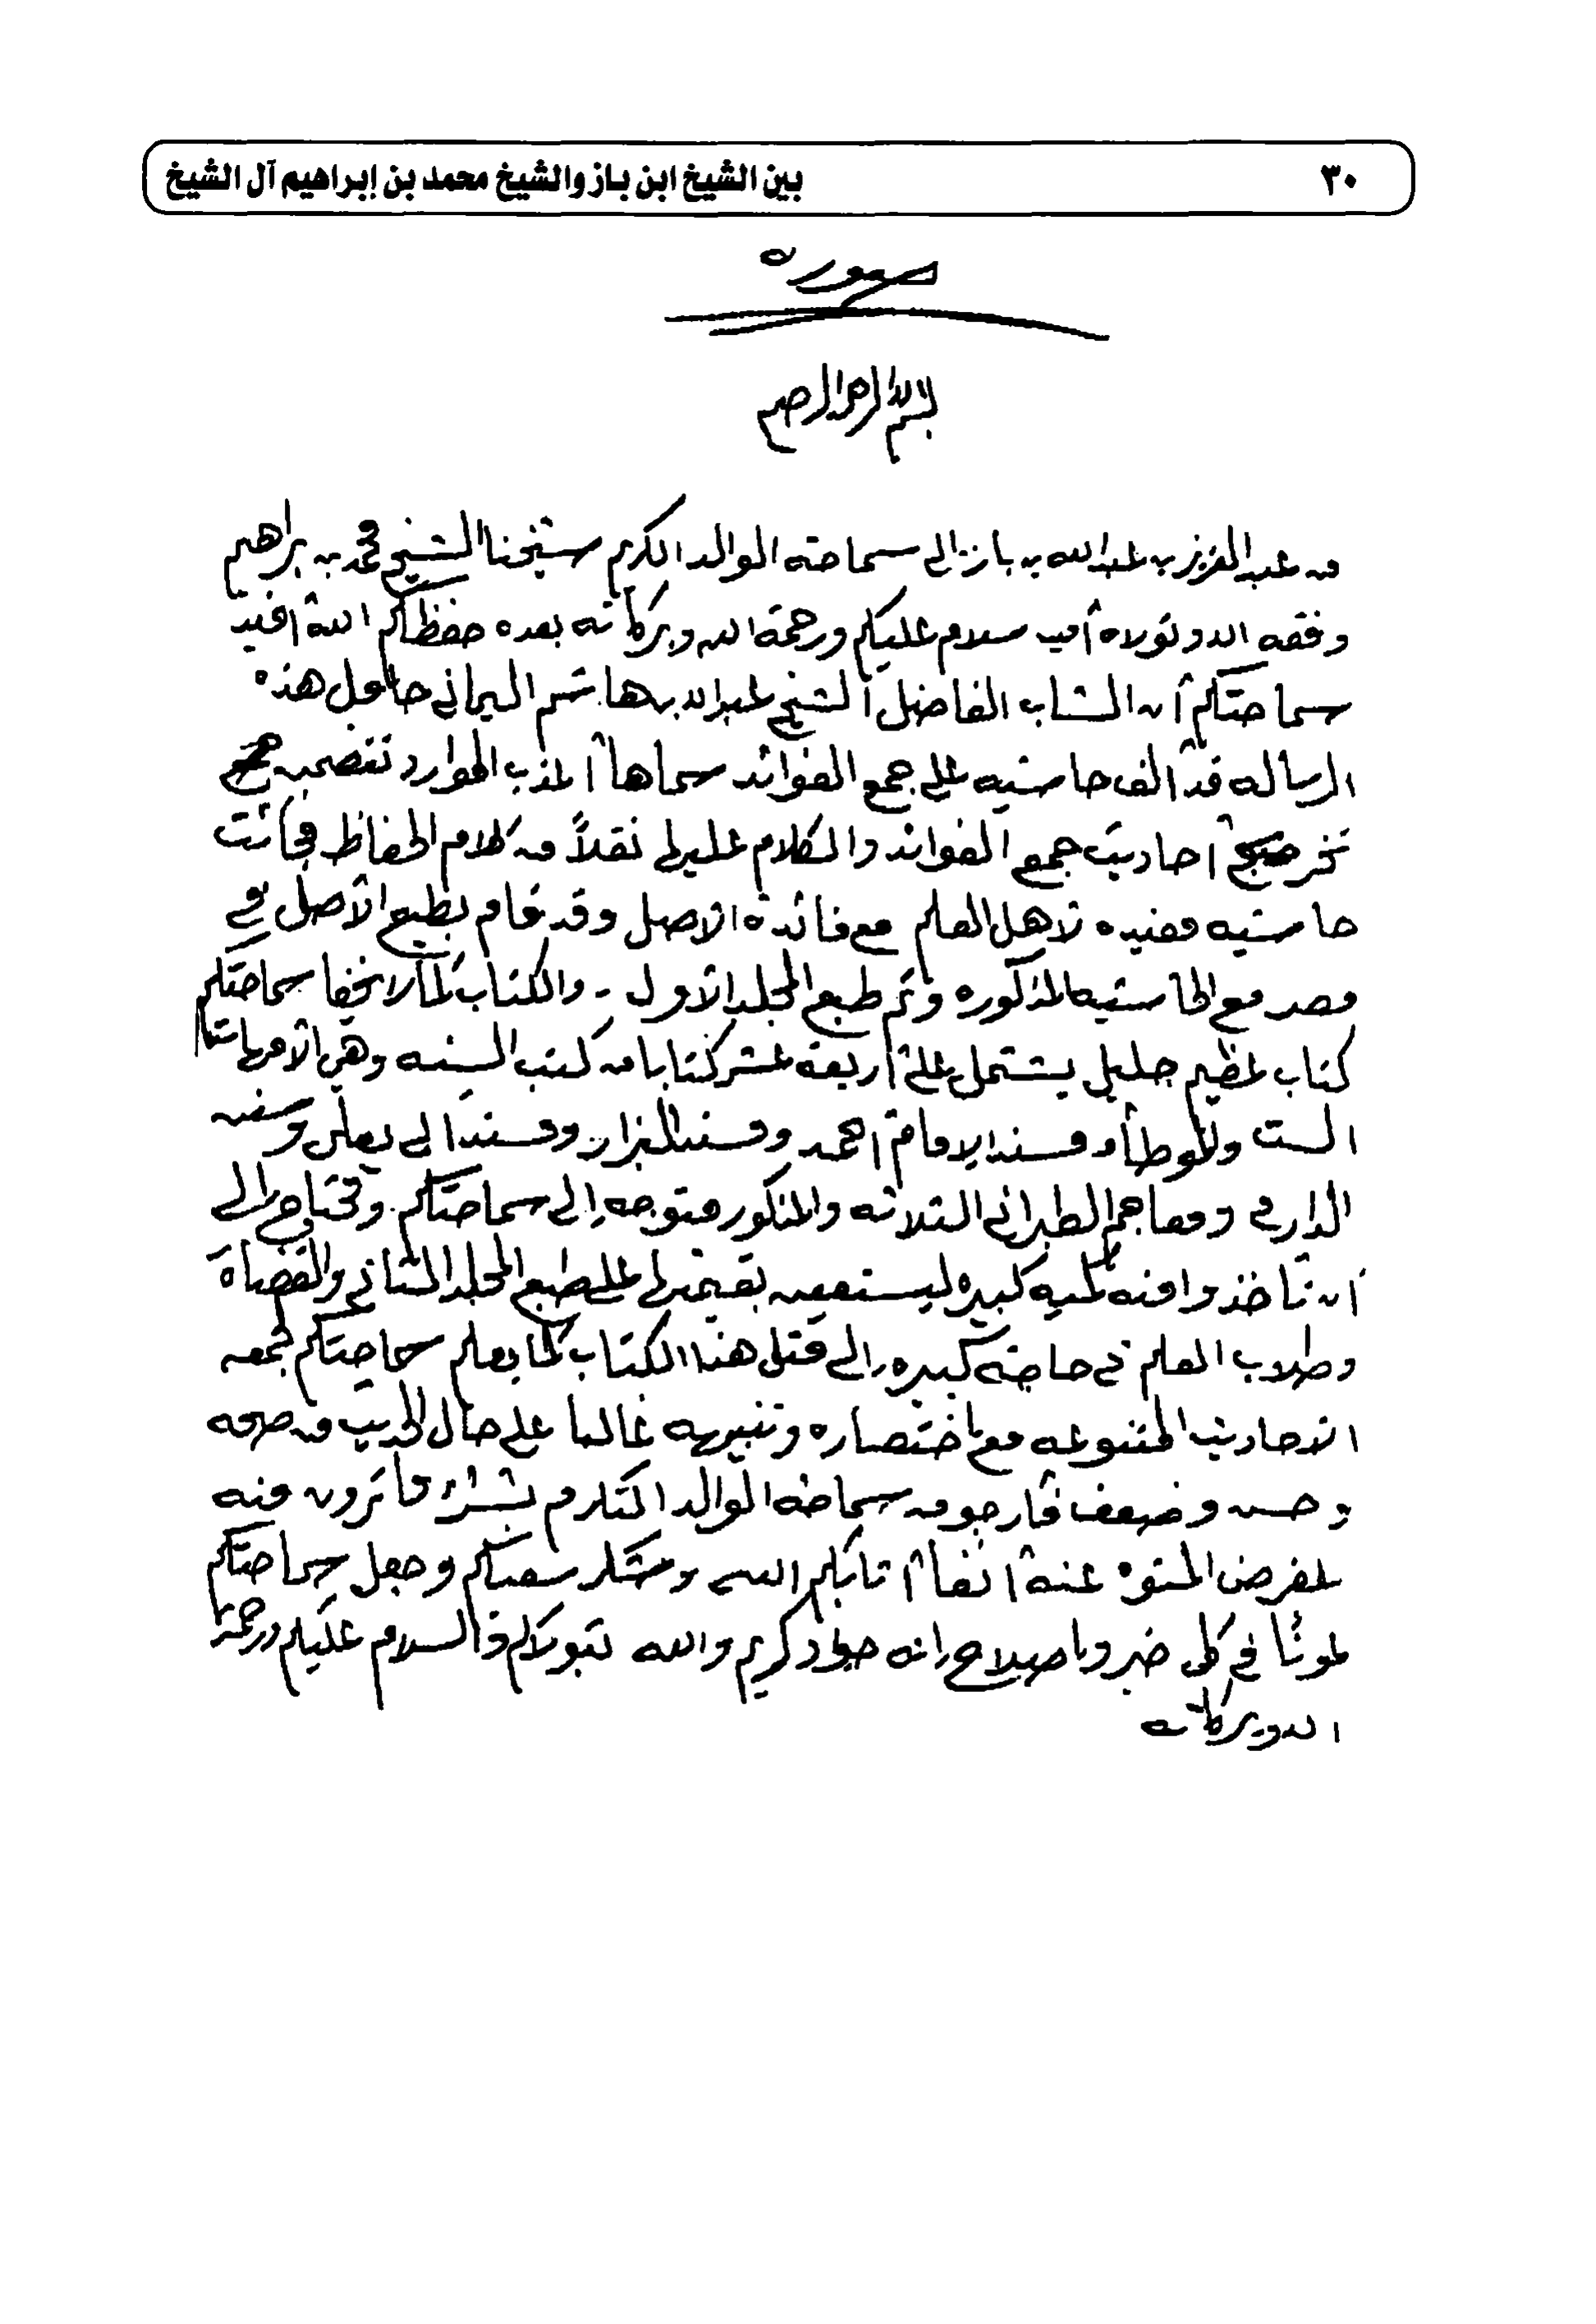 ٣٠
بين الشيخ ابن باز والشيخ محمد بن إبراهيم آل الشيخ
صوره
بسم الله الرحمن الرحيم
من عبد العزيز بن عبد الله بن باز إلى سماحة الوالد الكريم شيخنا الشيخ محمد بن ابراهيم
وفقه الله وتولاه آمين سلام عليكم ورحمة الله وبركاته بعده حفظكم الله أفيد
سماحتكم أن الشاب الفاضل الشيخ عبد الله بن هاشم اليماني حامل هذه
الرساله قد ألف حاشيه على جمع الفوائد سماها أعذب الموارد تتضمن
تخريج أحاديث جمع الفوائد والكلام عليها نقلاً من كلام الحفاظ فجائت
حاشيه مفيده لأهل العلم مع فائدة الاصل وقد قام بطبع الأصل في
مصر مع الحاشيه المذكوره وتم طبع المجلد الأول - والكتاب كما لا يخفا سماحتكم
كتاب عظيم جليل يشتمل على أربعة عشر كتابا من كتب السنه وهي الأمهات
الست والموطأ ومسند الإمام أحمد ومسند البزار ومسند أبي يعلى وسنن
الدارمي ومعاجم الطبراني الثلاثه والمذكور متوجه إلى سماحتكم. ونحتاج إلى
أن تأخذوا منه كميه كبيره ليستعين بقيمتها على طبع المجلد الثاني والقضاة
وطلاب العلم في حاجة كبيره إلى مثل هذا الكتاب كما يعلم سماحتكم لجمعه
الأحاديث المتنوعه مع اختصاره وتنبيهه غالبا على حال الحديث من صحه
وحسن وضعف فأرجو من سماحة الوالد التكرم بشراء ما ترون منه
للغرض المنوه عنه آنفاً أثابكم الله وشكر سعيكم وجعل سماحتكم
عونًا في كل خير وإصلاح إنه جواد كريم والله يتولاكم والسلام عليكم ورحمة
الله وبركاته